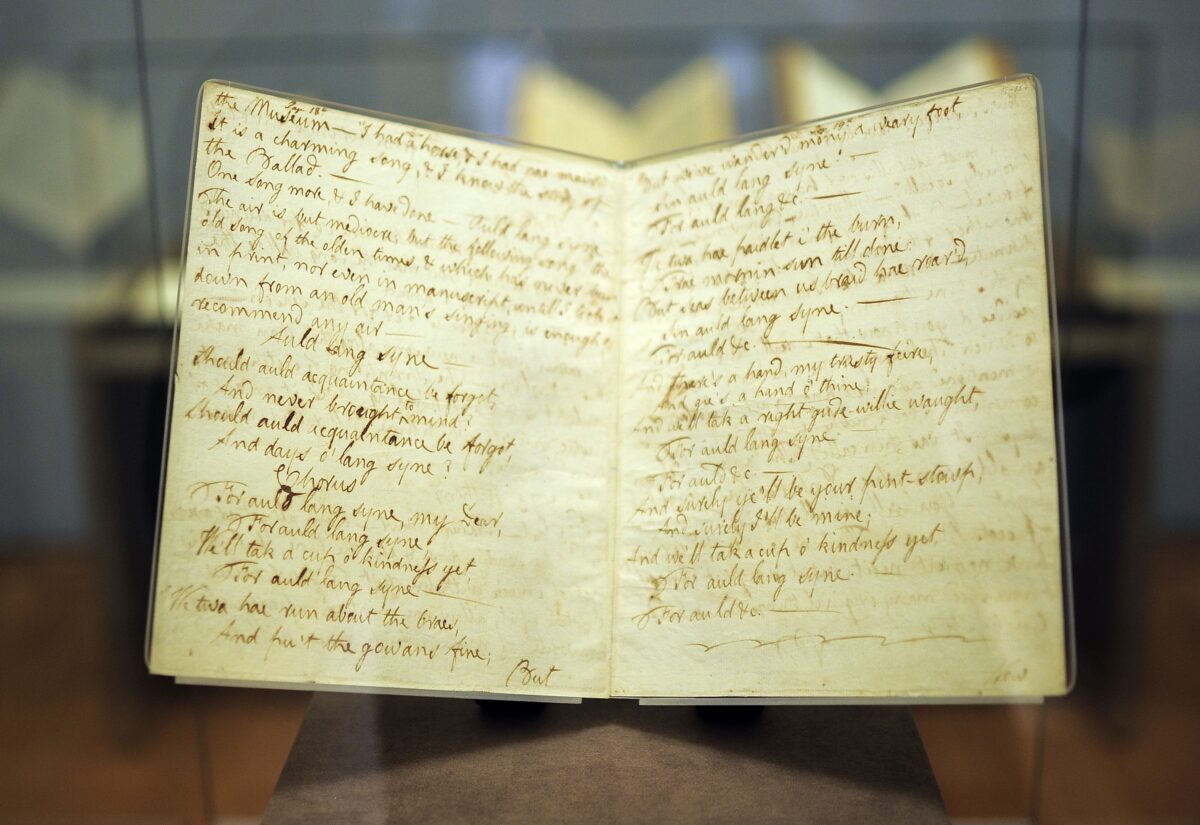 the Museum — "I had a horse, & I had nae mair."
It is a charming song, & I know the story of
the Ballad. —
One song more, & I have done — Auld lang syne
The air is but mediocre; but the following song, the
old song of the olden times, & which has never been
in print, nor even in manuscript, until I took it
down from an old man's singing, is enough to
recommend any air —
Auld lang syne
Should auld acquaintance be forgot,
And never brought to mind?
Should auld acquaintance be forgot,
And days o' lang syne?
Chorus
For auld lang syne, my Dear,
For auld lang syne,
We'll tak a cup o' kindness yet
For auld lang syne —
We twa hae run about the braes,
And pu't the gowans fine;
But
But we've wander'd mony a weary foot,
Sin auld lang syne. —
For auld lang &c. —
We twa hae paidlet i' the burn,
Frae mornin sun till dine:
But seas between us braid hae roar'd,
Sin auld lang syne. —
For auld &c. —
And there's a hand, my trusty feire,
And gie's a hand o' thine;
And we'll tak a right gude-willie waught,
For auld lang syne
For auld &c. —
And surely ye'll be your pint-stowp,
And surely I'll be mine;
And we'll tak a cup o' kindness yet
For auld lang syne. —
For auld &c. —